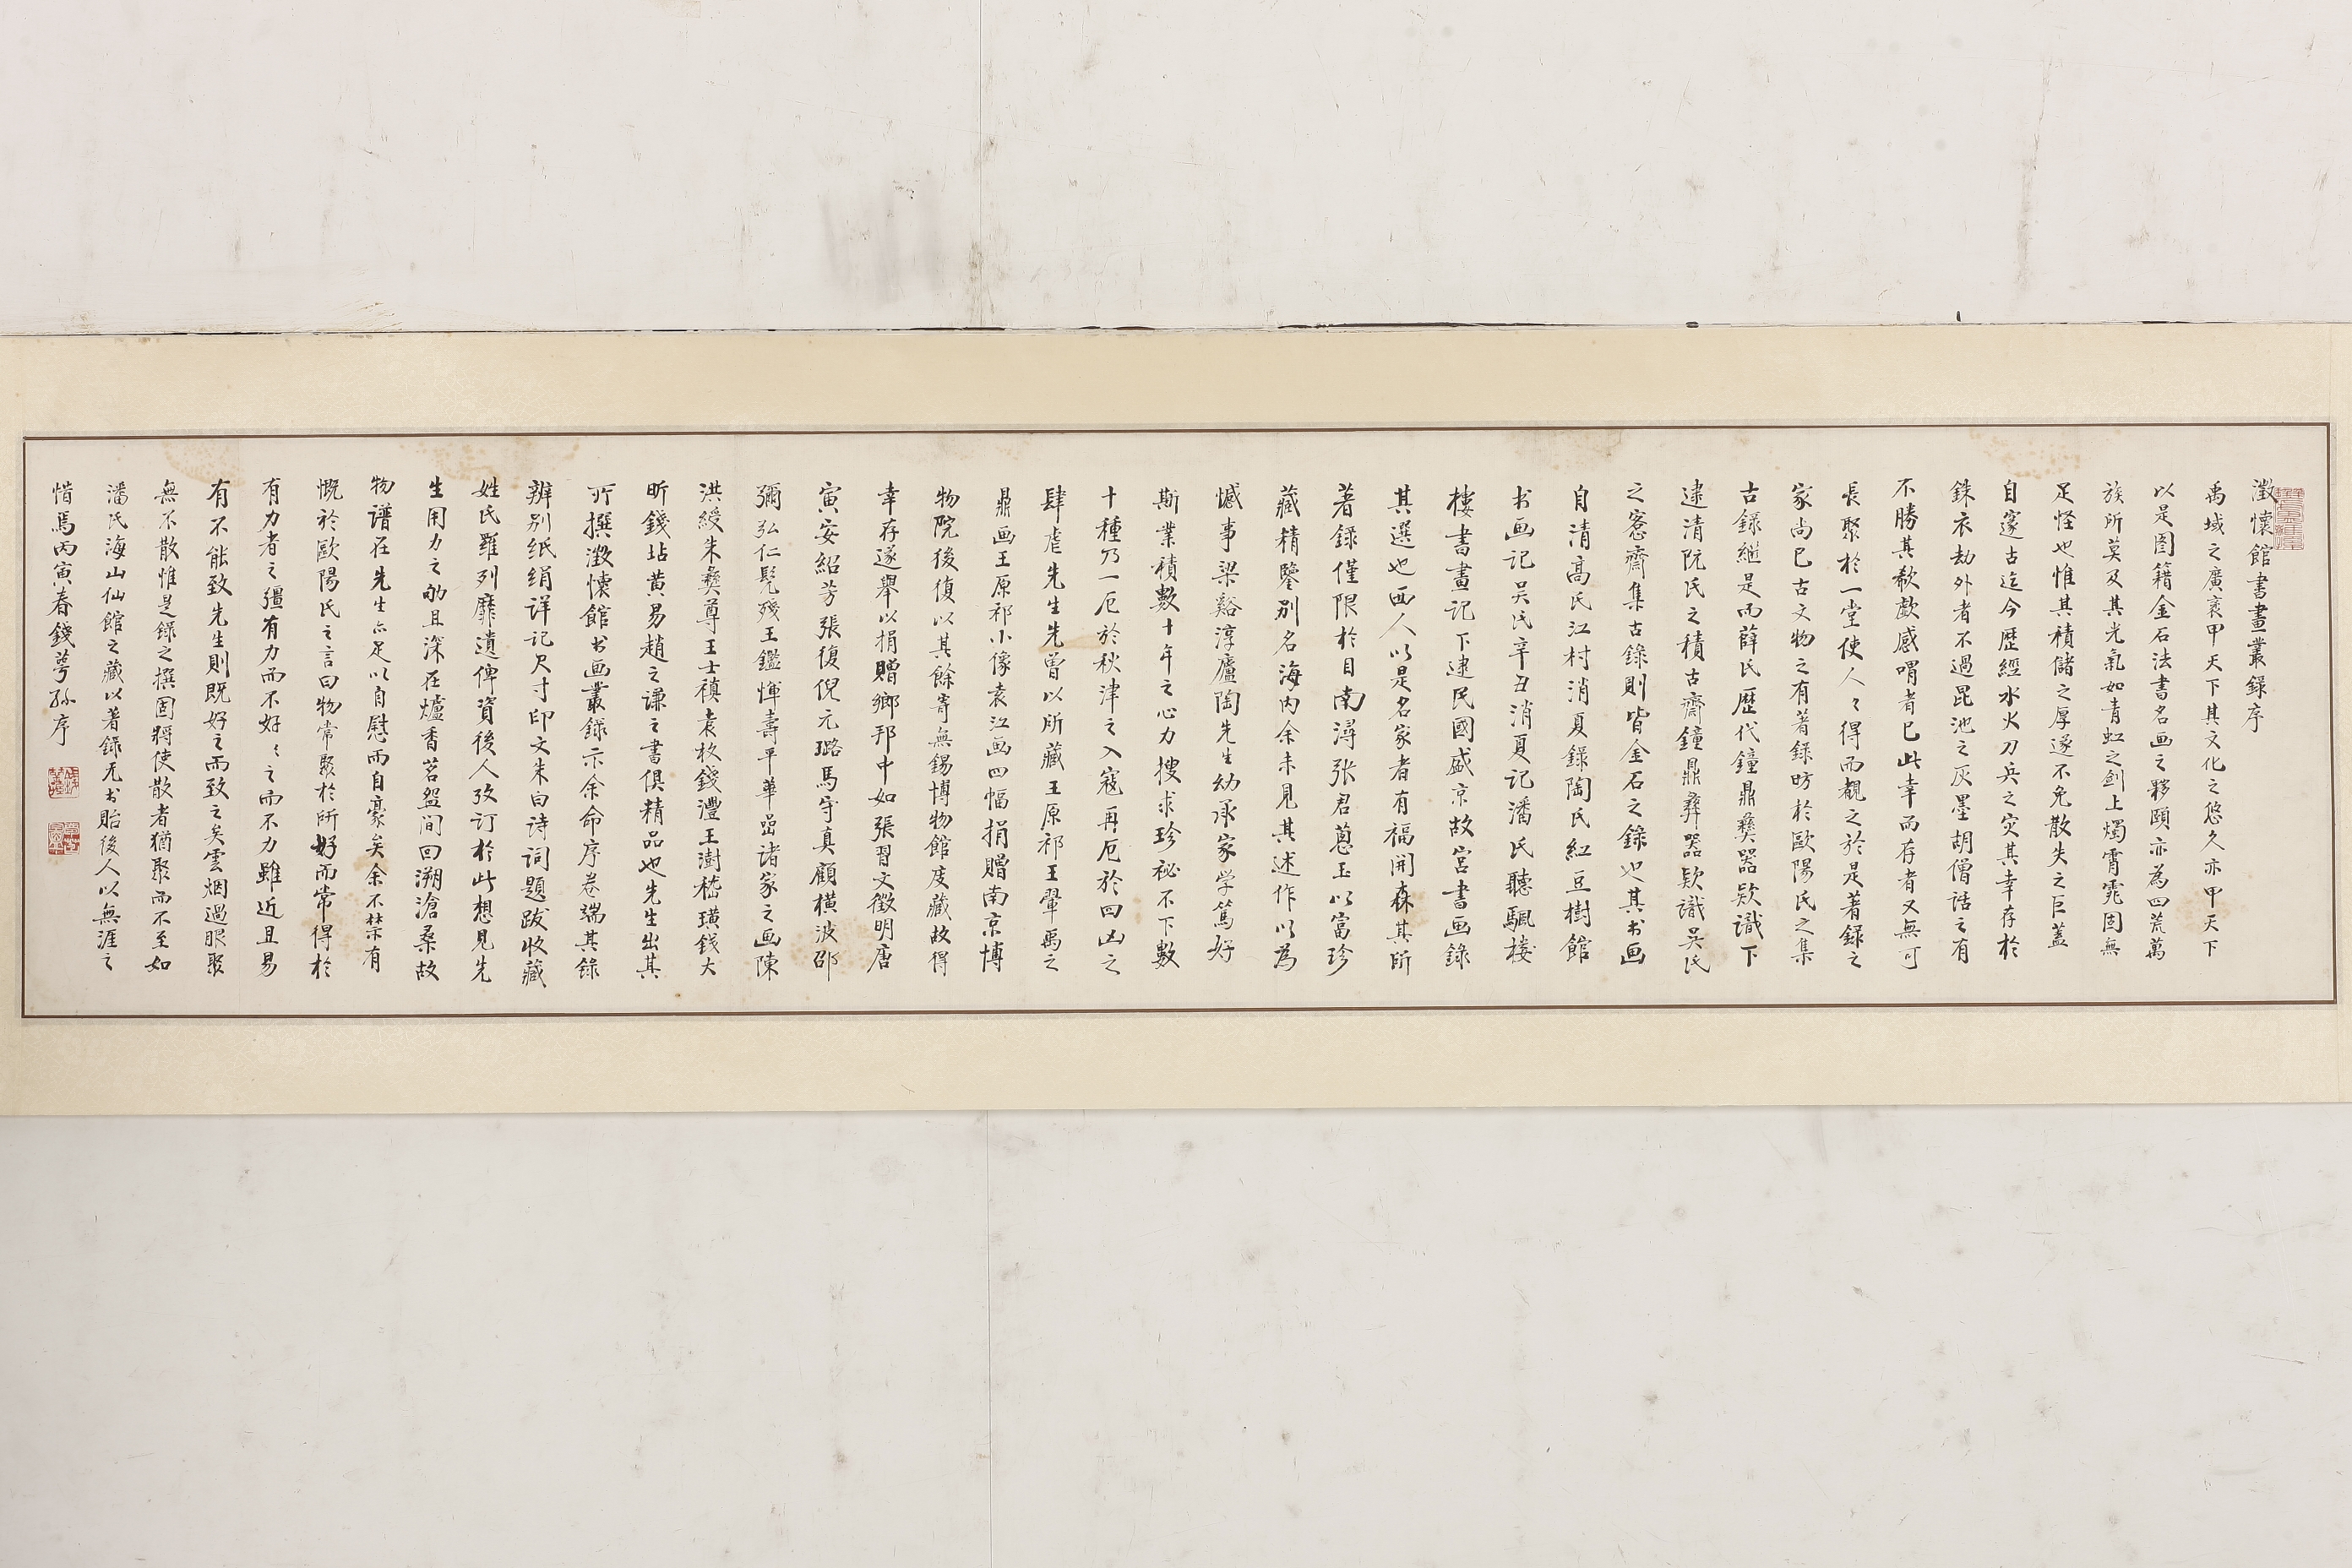 澂懷館書畫叢錄序
禹域之廣袤甲天下其文化之悠久亦甲天下
以是图籍金石法書名画之夥頤亦為四荒萬
族所莫及其光氣如青虹之劍上燭霄雿固無
足怪也惟其積儲之厚遂不免散失之巨蓋
自邃古迄今歷經水火刀兵之灾其幸存於
銖衣劫外者不過昆池之灰墨胡僧話之有
不勝其欷歔感喟者已此幸而存者又無可
長聚於一堂使人〻得而覩之於是著錄之
家尚已古文物之有著錄昉於歐陽氏之集
古錄繼是而薛氏歷代鐘鼎彜器欵識下
逮清阮氏之積古齋鐘鼎彜器欵識吴氏
之愙齋集古錄則皆金石之錄也其书画
自清高氏江村消夏錄陶氏紅豆樹館
书画记吴氏辛丑消夏记潘氏聽颿楼
樓書畫记下逮民國盛京故宮書画錄
其選也西人以是名家者有福開森其所
著錄僅限於目南潯张君蔥玉以富珍
藏精鑒别名海内余未見其述作以為
憾事梁谿淳廬陶先生幼承家学篤好
斯業積數十年之心力搜求珍祕不下數
十種乃一厄於秋津之入寇再厄於四凶之
肆虐先生先曾以所藏王原祁王翬禹之
鼎画王原祁小像袁江画四幅捐贈南京博
物院後復以其餘寄無錫博物館庋藏故得
幸存遂舉以捐贈鄉邦中如張習文徵明唐
寅安紹芳張復倪元璐馬守真顧橫波邵
彌弘仁髡殘王鑑惲壽平華嵒诸家之画陳
洪綬朱彝尊王士禛袁枚錢灃王澍嵇璜錢大
昕錢坫黄易趙之谦之書俱精品也先生出其
所撰澂懷館书画叢錄示余命序卷端其錄
辨别纸绢详记尺寸印文朱白诗词題跋收藏
姓氏羅列靡遺俾資後人攷订於此想見先
生用力之劬且深在爐香茗盌间回溯滄桑故
物谱在先生亦足以自慰而自豪矣余不禁有
慨於歐陽氏之言曰物常聚於所好而常得於
有力者之彊有力而不好〻之而不力雖近且易
有不能致先生則既好之而致之矣雲烟過眼聚
無不散惟是錄之撰固將使散者猶聚而不至如
潘氏海山仙館之藏以著錄无书貽後人以無涯之
惜焉丙寅春錢萼孫序